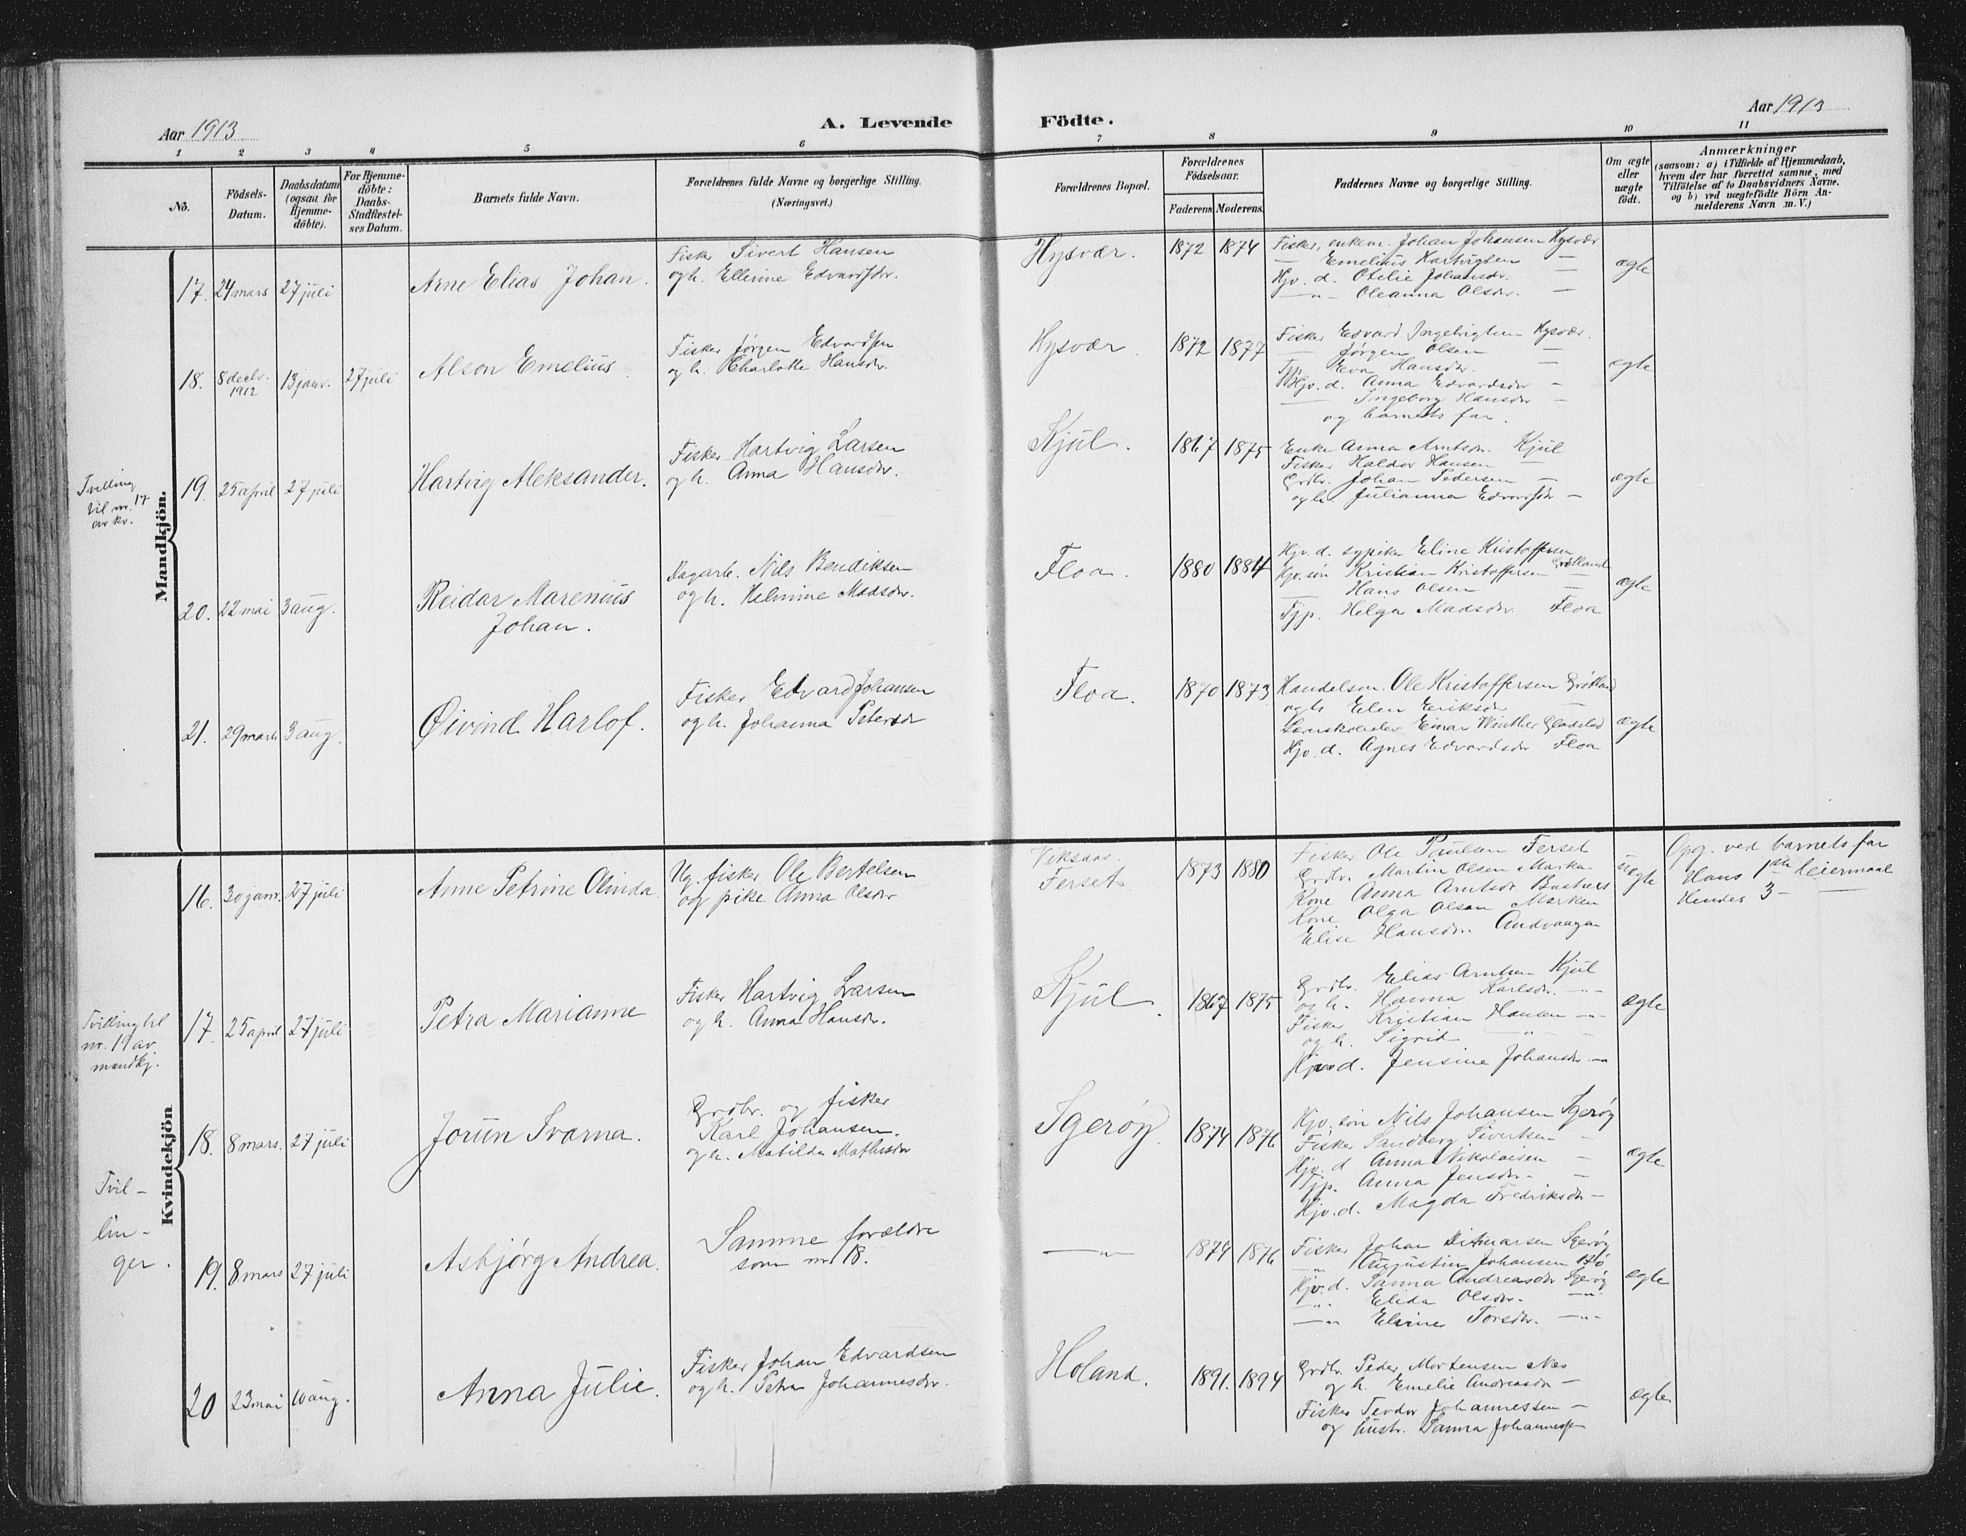 Aar 1913
A. Levende
Födte.
Aar 1913
1 2 3 4 5 6 7 8 9 10 11
No.
Födsels-
Datum.
Daabsdatum
(ogsaa for
Hjemme-
döbte).
For Hjemme-
döbte:
Daabs-
Stadfæstel-
ses Datum.
Barnets fulde Navn.
Forældrenes fulde Navne og borgerlige Stilling.
(Næringsvei.)
Forældrenes Bopæl.
Forældrenes
Födselsaar.
Faderens. Moderens.
Faddernes Navne og borgerlige Stilling.
Om ægte
eller
uægte
födt.
Anmærkninger
(saasom: a) i Tilfælde af Hjemmedaab,
hvem der har forrettet samme, med
Tilföielse af to Daabsvidners Navne.
og b) ved uægtefödte Börn An-
melderens Navn m. V.)
Mandkjön.
17. 24 mars 27 juli
Arne Elias Johan.
Fisker Sivert Hansen
og h. Ellerine Edvardsdr.
Hysvær.
1872 1874
Fisker, enkem. Johan Johansen Hysvær
— Emelius Hartvigsen —
Hjv. d. Otelie Johansdr. —
— " — Oleanna Olsdr. —
ægte
18. 8 decbr. 1912 13 janr. 27 juli
Alson Emelius.
Fisker Jørgen Edvardsen
og h. Charlotte Hansdr.
Hysvær.
1872 1877
Fisker Edvard Ingebrigtsen Hysvær.
— Jørgen Olsen —
Tjp. Eva Hansdr. —
Hjv. d. Anna Edvardsdr —
— Ingeborg Hansdr —
og barnets far.
ægte
Tvilling
til nr. 17
av kv.
19. 25 april 27 juli
Hartvig Aleksander.
Fisker Hartvig Larsen
og h. Anna Hansdr.
Kjul.
1867 1875
Enke Anna Arntsdr. Kjul
Fisker Haldor Hansen —
Grdbr. Johan Pedersen —
og h. Julianna Edvardsdr —
ægte
20. 22 mai 3 aug.
Reidar Marenius
Johan.
Dagarb. Nils Bendiksen
og h. Helmine Madsdr.
Floa.
1880 1884
Hjv. d. sypike Eline Kristoffersen
Hjv. søn Kristian Kristoffersen Grøtland
— Hans Olsen —
Tjp. Helga Madsdr. Floa
ægte
21. 29 mars 3 aug.
Øivind Harlof.
Fisker Edvard Johansen
og h. Johanna Petersdr
Floa.
1870 1873
Handelsm. Ole Kristoffersen Grøtland
og h. Elen Eriksdr —
Lærerskoleelev Einar Winther Gladstad
Hjv. d. Agnes Edvardsdr Floa
ægte
Kvindekjön
16. 30 janr. 27 juli
Anne Petrine Olinda
Ug. fisker Ole Bertelsen
og pike Anna Olsdr
Viksaas.
Ferset.
1873 1880
Fisker Ole Paulsen Ferset
Grdbr. Martin Olsen Marka
Kone Anna Arntsdr
Kone Olga Olsen Marken
Elise Hansdr. Andvaagan
uægte
Opg. ved barnets far
Hans 1ste leiermaal
Hendes 3 — —
Tvilling til
nr. 19 av
mandkj.
17. 25 april 27 juli
Petra Marianne
Fisker Hartvig Larsen
og h. Anna Hansdr.
Kjul.
1867 1875
Grdbr. Elias Arntsen Kjul
og h. Hanna Karlsdr. — " —
Fisker Kristian Hansen — " —
og h. Sigrid "
Hjv. d. Jensine Johansdr. — " —
ægte
Tvil-
lin-
ger.
18. 8 mars. 27 juli
Jorun Svarna.
Grdbr. og fisker
Karl Johansen.
og h. Matilde Mathisdr
Sgerøy.
1874 1876
Hjv. søn Nils Johansen Sgerøy
Fisker Sandberg Sivertsen —
Hjv. d Anna Nikolaisen —
Tjp. Anna Jensdr. —
Hjv. d. Magda Fredriksdr —
ægte
19. 8 mars 27 juli
Asbjørg Andrea.
Samme forældre
som nr 18.
— " —
1874 1876
Fisker Johan Ditmarsen Sgerøy
" Augustin Johansen Bø
Hjv. d. Sanna Andreasdr Sgerøy
— " — Elida Olsdr. — " —
— " — Eline Torsdr. — " —
ægte
20 23 mai 10 aug.
Anna Julie.
Fisker Johan Edvardsen
og h. Petra Johannesdr.
Holand.
1891. 1894
Grdbr. Peder Mortensen Næs
og h. Emelie Andreasdr —
Fisker Teodor Johannessen —
og hustr. Sanna Johannesen
ægte